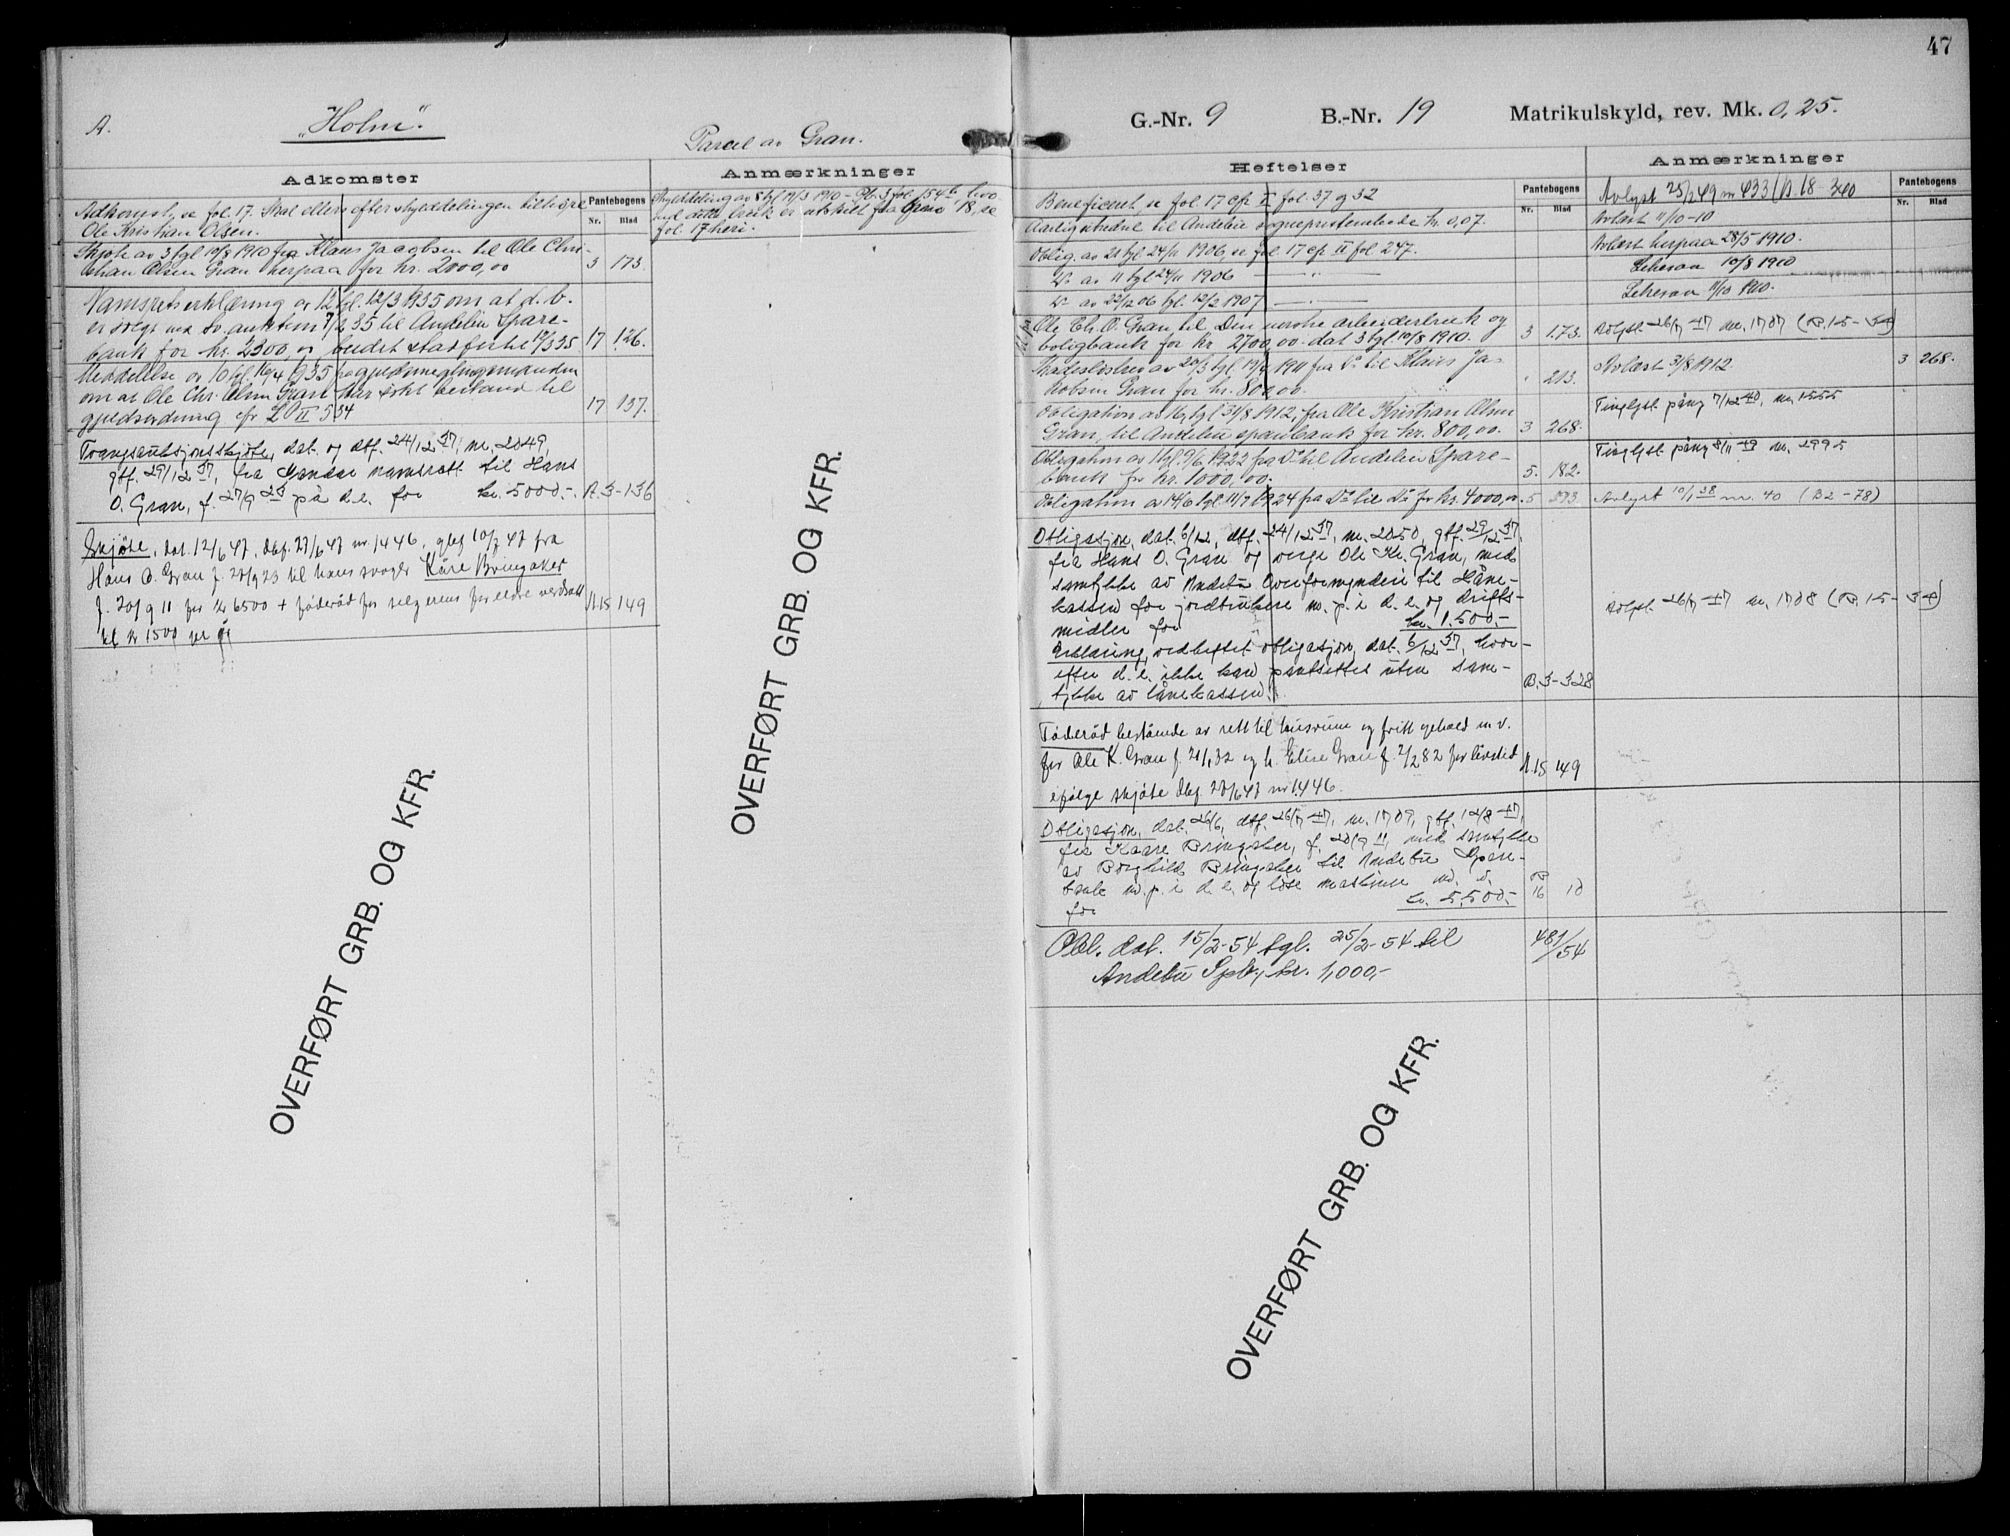 47
A.
"Holm".
Parcel av Gran.
G.-Nr. 9 B.-Nr. 19 Matrikulskyld, rev. Mk. 0,25.
Adkomster
Pantebogens
Nr. Blad
Adkomst, se fol. 17. Skal ellers efter skyldelingen tilhøre
Ole Kristian Olsen.
Skjøte av 3 tgl 10/8 1910 fra Klaus Jacobsen til Ole Chri-
stian Olsen Gran herpaa for kr. 2000,00 3 173.
Namsretserklæring av 12 tgl. 12/3 1935 om at d. b.
er solgt ved tv. auktion 7/2 35 til Andebu Spare-
bank for kr. 2300,00, budet stadfestet 35 17 126.
Meddelelse av 10 tgl. 16/4 1935 fra gjeldsmeglingsmanden
om at Ole Chr. Olsen Gran har søkt bestand til
gjeldsordning cfr LD II 534 17 137.
Tvangsauksjonsskjøte, dat. og dbf. 24/12 37, nr. 2049,
gtf. 29/12 37, fra namsrett til Hans
O. Gran, f. 27/9 23 på d.e. for kr. 5000,- A.3-136
Skjøte, dat. 12/6 47, dbf. 27/6 47 nr. 1446, glbf 10/7 47 fra
Hans O. Gran f. 27/9 23 til hans svoger Kåre Bringaker
f. 20/9 11 for kr 6500 + føderåd for selgerens foreldre verdsatt A.15 149
til kr 1500 per år
Anmærkninger
Skylddeling av 8 tgl 19/3 1910 - Pb. 3 fol. 154 b, hvo
ved dette bruk er utskilt fra Gran 18, se
fol. 17 heri.
OVERFØRT GRB. OG KFR.
OVERFØRT GRB. OG KFR.
Heftelser
Pantebogens
Nr. Blad
Anmærkninger
Pantebogens
Nr. Blad
Beneficeret, se fol 17 cfr II fol. 37 og 32 Avlyst 25/2 49 nr 433 (B. 18 - 340
Aarlig utredsel til Andebu sogneprestembede kr. 0,07. Avlæst 11/10-10
Oblig. av 21 tgl 24/11 1906, se fol 17 cfr II fol 247. Avlæst herpaa 28/5 1910.
Do av 11 tgl 24/11 1906 — " — 10/8 1910
Do av 22/12 06 tgl. 12/2 1907 — " — 11/10 1910.
Ole Ch. O. Gran til Den norske arbeiderbruk og
boligbank for kr 2700,00 dat 3 tgl 10/8 1910. 3 173. Avlyst 26/7 47 nr. 1707 (B.15-34)
Skadesløsbrev av 20/3 tgl 19/4 1911 fra Do til Klaus Ja-
kobsen Gran for kr. 800,00. " 213. Avlæst 3/8 1912. 3 268.
Obligation av 16, tgl 31/8 1912, fra Ole Kristian Olsen
Gran, til Andebu sparebank for kr. 800,00. 3 268. Tinglyst påny 7/12 40, nr. 1555
Obligation av 1 tgl. 9/6 1922 fra Do til Andebu Spare-
bank for kr. 1000,00. 5. 182. Tinglyst påny 8/11 49 nr. 2995
Obligation av 14/6 tgl. 11/7 1924 fra Do til Do for kr. 4000,00. 5 593. Avlyst 10/1 38 nr. 40 (B2-78)
Obligasjon, dat. 6/12, dbf. 24/12 37, nr. 2050, gtf. 29/12 37,
fra Hans O. Gran og verge Ole Kr. Gran, med
samtykke av Andebu Overformynderi til Låne-
kassen for jordbrukere m. p. i d. e. og drifts-
midler for kr. 1.500.- Avlyst 26/7 47 nr. 1708 (B.15-34)
Erklæring, vedheftet obligasjon, dat. 6/12 37, hvor-
efter d. e. ikke kan pantsettes uten sam-
tykke av lånekassen. B.3-328
Føderåd bestående av rett til husrum og fritt ophold m.v.
for Ole K. Gran f. og h. Elise Gran f. 2/2 82 for livstid A.15 149
ifølge skjøte dbf 27/6 47 nr 1446.
Obligasjon, dat. 26/6, dbf. 26/7 47, nr. 1709, gtf. 14/8 47,
fra Kaare Bringaker, f. 20/9 11, med samtykke
av Borghild Bringaker til Andebu Spare-
bank m. p. i d. e. og løse maskiner m. v. B
for kr. 5.500.- 16 10
Obl. dat. 15/2-54 tgl. 25/2-54 til 481/54
Andebu Spb, kr. 1,000,-
OVERFØRT GRB. OG KFR.